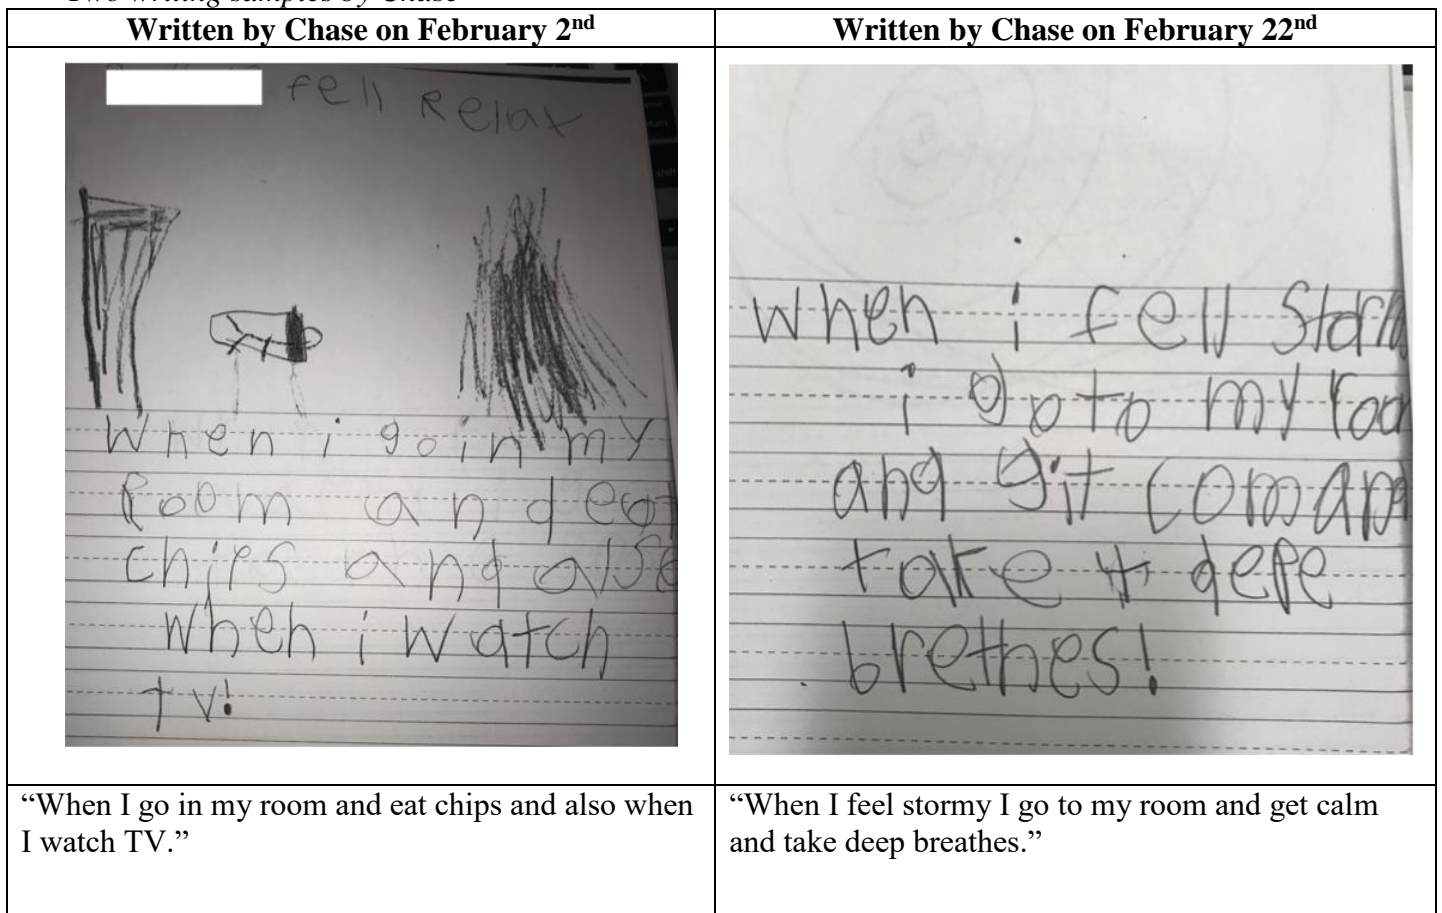 Two writing samples by Chase
Written by Chase on February 2nd
Written by Chase on February 22nd
fell Relax
When i go in my
Room and eat
chips and also
when i watch
tv!
when i fell Storm
i go to my roo
and git com an
take 4 depe
brethes!
“When I go in my room and eat chips and also when
I watch TV.”
“When I feel stormy I go to my room and get calm
and take deep breathes.”